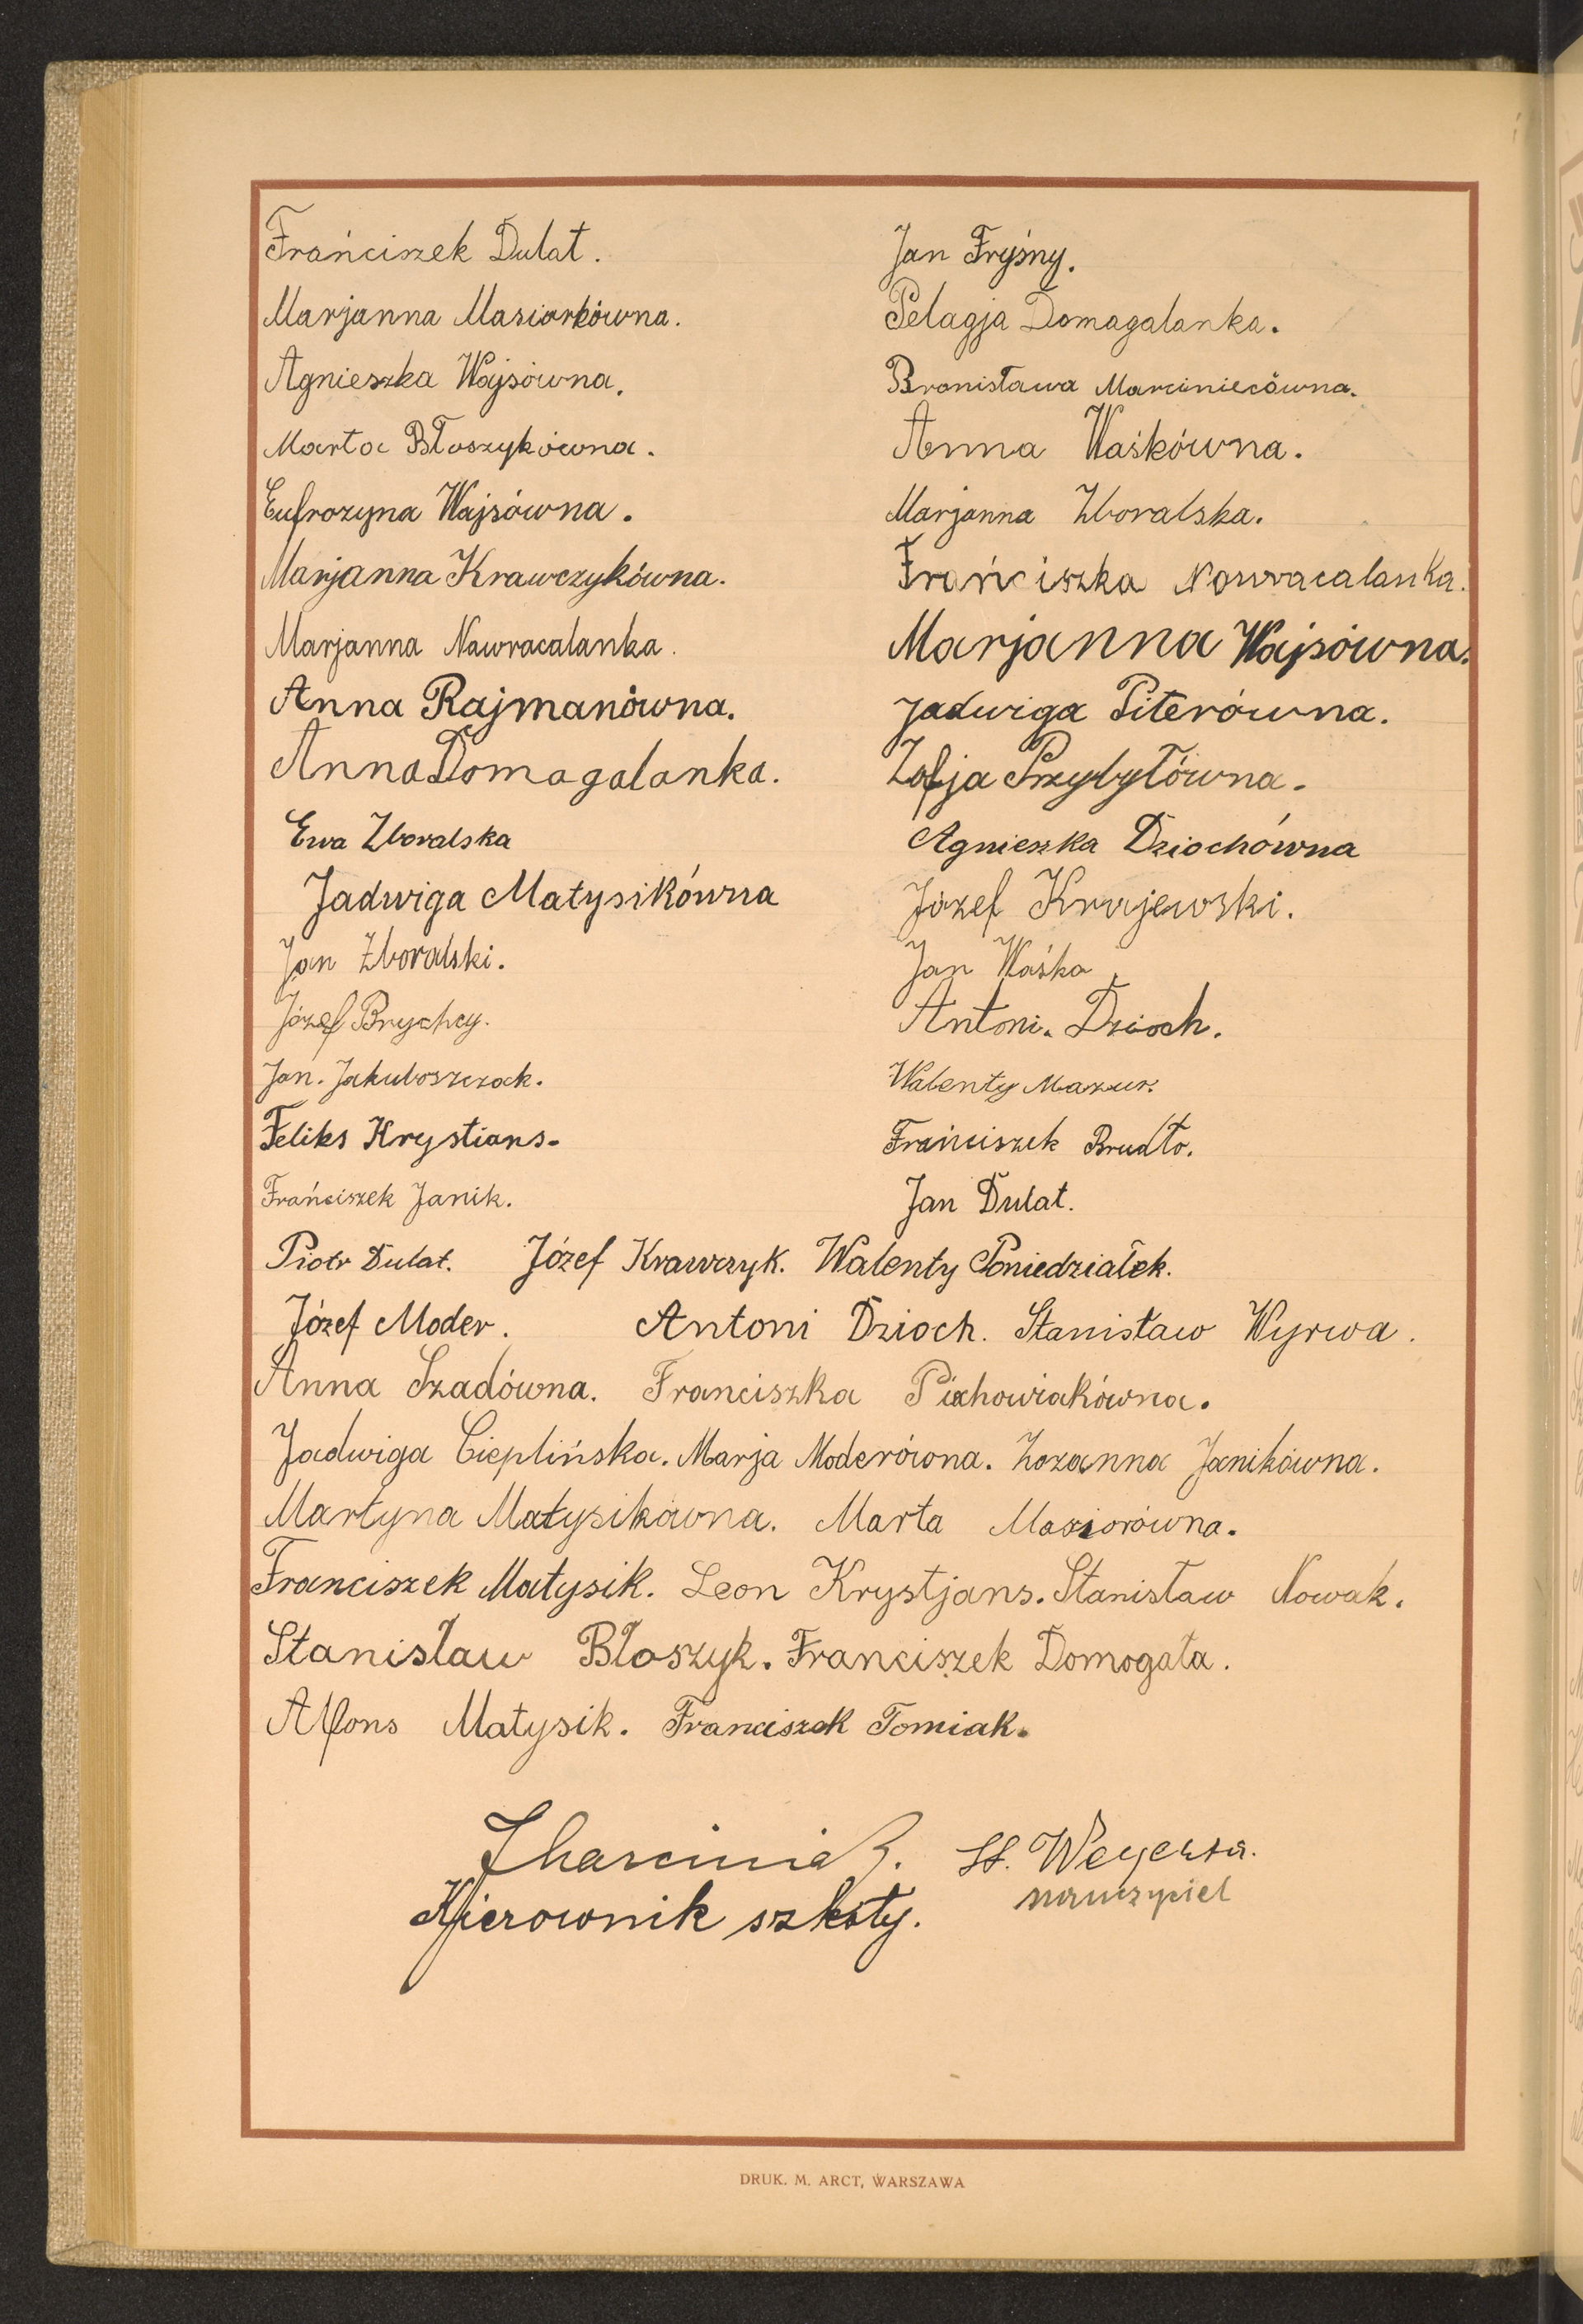 Frańciszek Dulat. Jan Fryśny.
Marjanna Masiorkówna. Pelagja Domagalanka.
Agnieszka Wajsówna. Bronisława Marciniecówna.
Marta Błoszykówna. Anna Waśkówna.
Eufrozyna Wajsówna. Marjanna Zboralska.
Marjanna Krawczykówna. Frańciszka Nawracalanka.
Marjanna Nawracalanka. Marjanna Wajsówna.
Anna Rajmanówna. Jadwiga Piterówna.
Anna Domagalanka. Zofja Przybyłówna.
Ewa Zboralska Agnieszka Dziochówna
Jadwiga Matysikówna Józef Krajewski.
Jan Zboralski. Jan Waśka
Józef Brychcy. Antoni. Dzioch.
Jan. Jakuboszczak. Walenty Mazur.
Feliks Krystians. Frańciszek Brudło.
Frańciszek Janik. Jan Dulat.
Piotr Dulat. Józef Krawczyk. Walenty Poniedziałek.
Józef Moder. Antoni Dzioch. Stanisław Wyrwa.
Anna Szadówna. Franciszka Piechowiakówna.
Jadwiga Cieplińska. Marja Moderówna. Zozanna Janikówna.
Martyna Matysikówna. Marta Masiorówna.
Franciszek Matysik. Leon Krystjans. Stanisław Nowak.
Stanisław Błoszyk. Franciszek Domogała.
Alfons Matysik. Franciszek Tomiak.
St.
Kierownik szkoły. nauczyciel
DRUK. M. ARCT, WARSZAWA